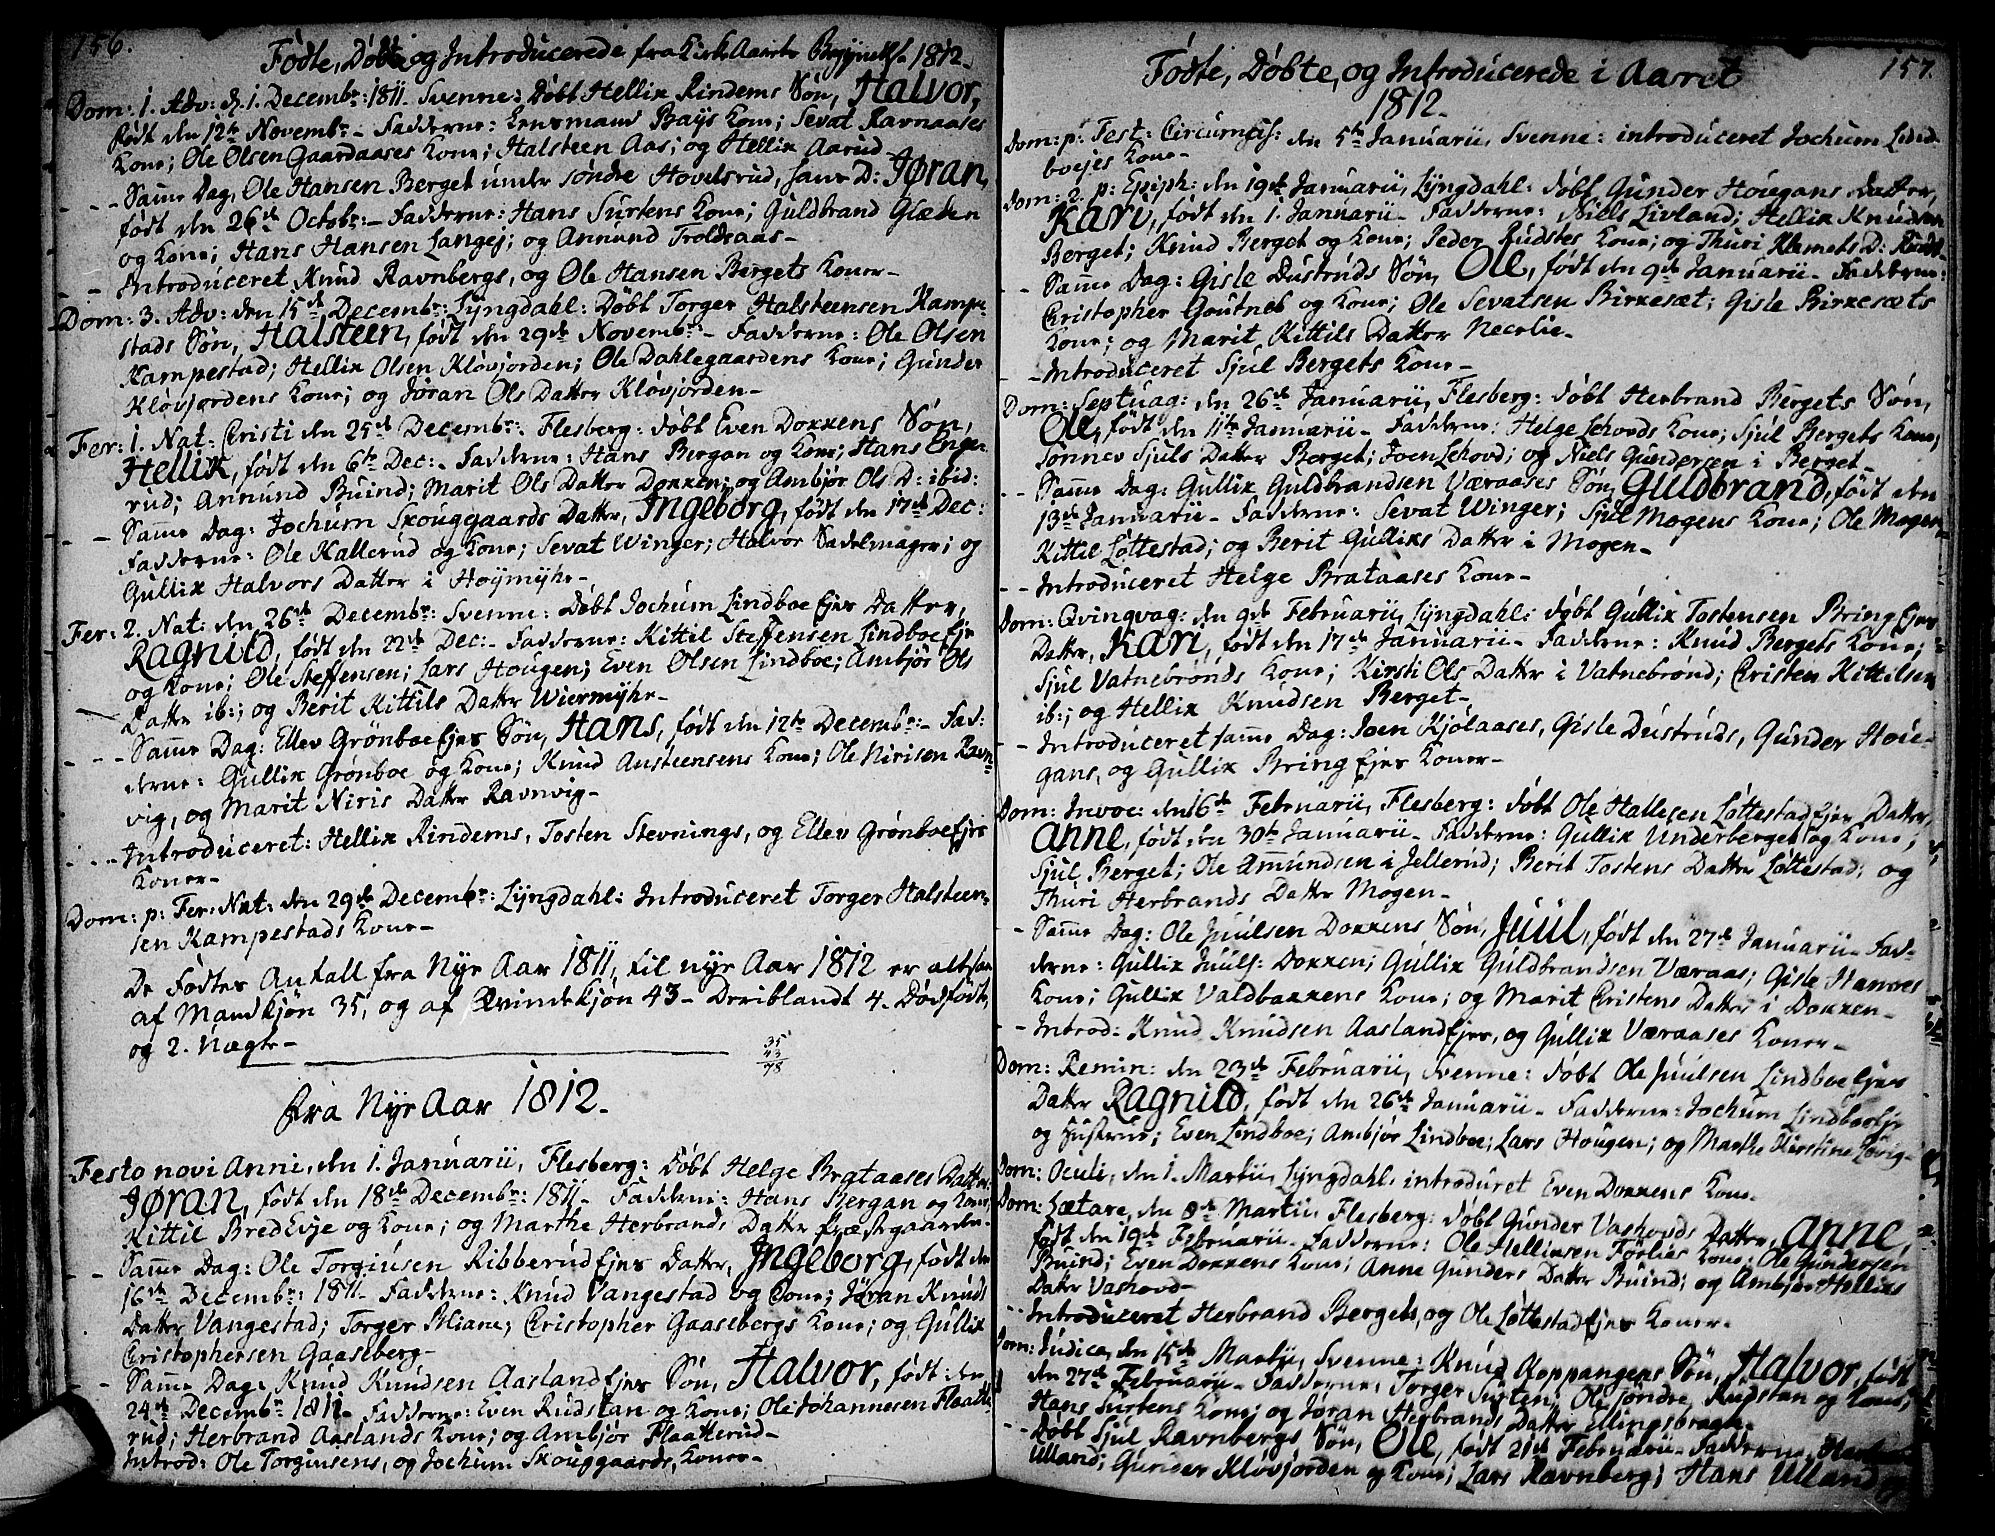 156.
Fødte, Døbte og Introducerede fra Kirke Aarets Begyndelse 1812.
Dom: 1. Adv: d. 1. Decembr: 1811. Svenne: Døbt Hellik Rindems Søn, Halvor,
født den 12te Novembr. Fadderne: Lensmand Bays Kone; Sevat Ravnaases
Kone; Ole Olsen Gaardaases Kone; Halsteen Aas; og Hellik Aarud
- - - Samme Dag, Ole Hansen Berget under søndre Hovelsrud, hans D: Jøran,
født den 26de Octobr:- Fadderne: Hans Surtens Kone; Guldbrand Glæben
og Kone; Hans Hansen Langej; og Annund Troldsaas-
- - Introduceret Knud Ravnbergs, og Ole Hansen Bergets Koner-
Dom: 3. Adv: den 15de Decembr: Lÿngdahl: Døbt Torger Halsteensen Kampe-
stads Søn, Halsteen, født den 29de Novembr:- Fadderne: Ole Olsen
Kampestad; Hellik Olsen Kløvjorden; Ole Dahlegaardens Kone; Gunder
Kløvjordens Kone; og Jøran Ols Datter Kløvjorden-
Fer: 1. Nat: Christi den 25de Decembr: Flesberg: døbt Even Dokkens Søn,
Hellik, født den 6te Dec:- Fadderne: Hans Bergan og Kone; Hans Enge-
rud; Annund Buind; Marit Ols Datter Dokken; og Ambjør Ols D: ibid:
- - Samme Dag: Jochum Skouggaards Datter, Ingeborg, født den 17de Dec:
Fadderne: Ole Kallerud og Kone; Sevat Winger; Halvor Sadelmager; og
Gullix Halvors Datter i Høÿmÿhr-
Fer: 2. Nat: den 26de Decembr: Svenne: Døbt Jochum Lindboe Ejes Datter,
Ragnild, født den 22de Dec:- Fadderne: Kittil Steffensen Lindboe Eje
og Kone; Ole Steffensen; Lars Hougen; Even Olsen Lindboe; Ambjør Ols
Datter ib:; og Berit Kittils Datter Wiermÿhr-
- - - Samme Dag: Ellev Grønboe Ejes Søn, Hans, født den 12te Decembr:- Fad-
derne: Gullix Grønboe og Kone; Knud Austeensens Kone; Ole Nirisen Ravn-
vig, og Marit Niris Datter Ravnvig-
- - - Introduceret: Hellix Rindems, Tosten Stevnings, og Ellev Grønboe Ejes
Koner-
Dom: p: Fer: Nat: den 29de Decembr: Lÿngdahl: Introduceret Torger Halsteen-
sen Kampestads Kone-
De Fødtes Antall fra Nye Aar 1811, til nye Aar 1812 er altsaa
af Mandkjøn 35, og af Qvindekjøn 43- Deriblandt 4. Dødfødte,
og 2. Uægte-
35
43
78
Fra Nye Aar 1812.
Festo novi Anni, den 1. Januarii, Flesberg: Døbt Helge Brataases Datter
Jøran, født den 18de Decembr: 1811- Fadderne: Hans Bergan og Kone;
Kittil BredEvje og Kone; og Marthe Herbrands Datter Præstgaarden-
- - Samme Dag: Ole Torgiusen Ribberud Ejes Datter, Ingeborg, født den
16de Decembr: 1811- Fadderne: Knud Vangestad og Kone; Jøran Knuds
Datter Vangestad; Torger Bliane; Christopher Gaasebergs Kone; og Gullix
Christophersen Gaaseberg-
- - Samme Dag: Knud Knudsen Aasland Ejes Søn, Halvor, født den
24de Decembr 1811- Fadderne: Even Rudstan og Kone; Ole Johannesen Flaatte-
rud; Herbrand Aaslands Kone; og Ambjør Flaatterud-
Introd: Ole Torgiusens, og Jochum Skouggaards, Koner-
157.
Fødte, Døbte, og Introducerede i Aaret
1812.
Dom: p: Fest: Circumcis: den 5te Januarii, Svenne: introduceret Jochum Lind-
boejes Kone-
Dom: 2. p: Epiph: den 19de Januarii, Lÿngdahl: døbt Gunder Hougans Datter,
Kari, født den 1. Januarii- Fadderne: Niels Livland; Hellix Knudsen
Berget; Knud Berget og Kone; Peder Rudstes Kone; og Thuri Klemets D:
- - Samme Dag: Gisle Dustruds Søn, Ole, født den 9de Januarii- Fadderne:
Christopher Goutneb og Kone; Ole Sevatsen Birkesæt; Gisle Birkesæts
Kone; og Marit Kittils Datter Necolie-
- - Introduceret Sjul Bergets Kone-
Dom: Septuag: den 26de Januarii, Flesberg: døbt Herbrand Bergets Søn,
Ole, født den 11te Januarii- Fadderne: Helge Lehovds Kone; Sjul Bergets Kone;
Sønnev Sjuls Datter Berget; Joen Lehovd; og Niels Gundersen i Berget-
- - Samme Dag: Gullix Guldbrandsen Væraases Søn, Guldbrand, født den
13de Januarii- Fadderne: Sevat Winger; Sjul Mogens Kone; Ole Mogen
Kittil Løttestad; og Berit Gullixs Datter i Mogen-
- - Introduceret Helge Brataases Kone-
Dom: Qvinqvag: den 9de Februarii, Lÿngdahl: døbt Gullix Tostensen Bring Ejes
Datter, Kari, født den 17de Januarii- Fadderne: Knud Bergets Kone;
Sjul Vatnebrønds Kone; Kirsti Ols Datter i Vatnebrønd; Christen Kittilsen
ib:; og Hellix Knudsen Berget-
- - Introduceret samme Dag: Joen Kjølaases, Gisle Dustruds, Gunder Hou-
gans, og Gullix Bring Ejes Koner-
Dom: Invoc: den 16de Februarii, Flesberg: døbt Ole Hallesen Løttestad Ejes Datter,
Anne, født den 30te Januarii- Fadderne: Gullix Underberget og Kone;
Sjul Berget; Ole Amundsen i Jellerud; Berit Tostens Datter Løttestad; og
Thuri Herbrands Datter Mogen-
- Samme Dag: Ole Juulsen Dokkens Søn, Juul, født den 27de Januarii- Fad-
derne: Gullix Juuls: Dokken; Gullix Guldbrandsen Væraas; Gisle Hamres
Kone; Gullix Valdbakkens Kone; og Marit Christens Datter i Dokken-
- - Introd: Knud Knudsen Aasland Ejes, og Gullix Væraases Koner-
Dom: Remin: den 23de Februarii, Svenne: døbt Ole Juulsen Lindboe Ejes
Datter Ragnild, født den 26de Januarii- Fadderne: Jochum Lindboe Eje
og Hustrue; Even Lindboe; Ambjør Lindboe; Lars Hougen; og Marthe Kirstine Løvig-
Dom: Oculi, den 1. Martii, Lÿngdahl: introduret Even Dokkens Kone-
Dom: Lætare, den 8de Martii, Flesberg: døbt Gunder Vashovds Datter, Anne,
født den 19de Februarii- Fadderne: Ole Hellixsen Førlies Kone; Ole Gundersen
Buind; Even Dokkens Kone; Anne Gunders Datter Buind; og Ambjør Hellixs
Datter Vashovd-
- - Introduceret Herbrand Bergets, og Ole Løttestad Ejes Koner-
Dom: Judica, den 15de Martii, Svenne: Knud Koppangens Søn, Halvor, født
den 27de Februarii- Fadderne: Torger Surten; Ole søndre Rudstan og Kone;
Hans Surtens Kone; og Jøran Herbrands Datter Ellingsbragh-
- - Døbt Sjul Ravnbergs Søn, Ole, født 21de Februarii- Fadderne:
Ulland; Gunder Kløvjorden og Kone; Lars Ravnberg; Hans Ulland